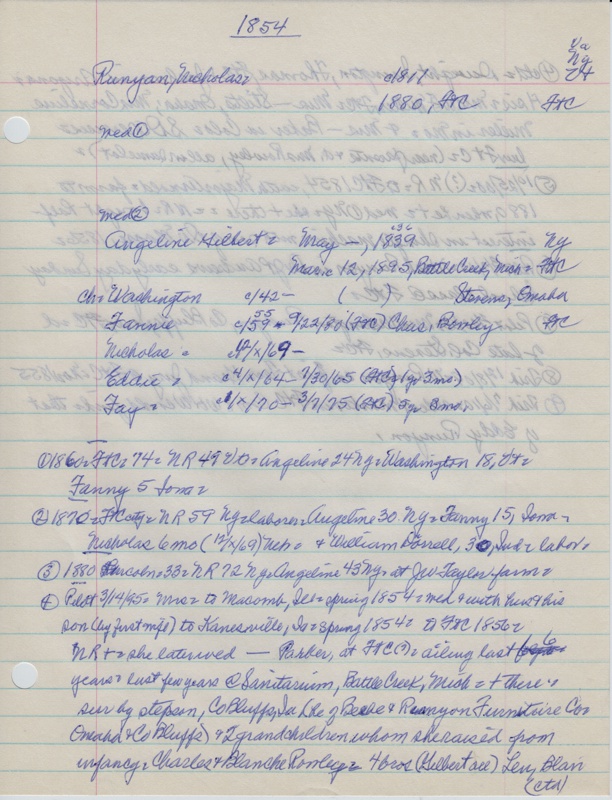 1854
Va
Ny
Vt
Runyan, Nicholas = c1817
1880, FtC FtC
med ①
med ②
Angeline Hilbert = May —, 1839 Ny
c36
March 12, 1895, Battle Creek, Mich = FtC
ch = Washington c/42 – ( ) Stevens, Omaha
Fannie c/59 = 9/22/80 (FtC) Chas. Rowley = FtC
55
Nicholas = 12/x/69 –
Eddie = c4/x/64 – 7/30/65 (FtC) = 1 yr 3 mo.)
Fay = c1/x/70 – 3/7/75 (FtC) 5 yr 3 mo.
① 1860 = FtC = 74 = NR 49 Vt = Angeline 24 Ny = Washington 18, Vt =
Fanny 5 Iowa =
② 1870 = FtC city = NR 59 Ny = laborer = Angeline 30 Ny = Fanny 15, Iowa =
Nicholas 6 mo (12/x/69) Neb = + William 30, Ind = labor =
③ 1880 Lincoln = 33 = NR 72 Ny = Angeline 43 Ny = at JW Taylor farm =
④ 3/14/95 = Mrs = to Macomb, Ill = spring 1854 = med + with hus + his
son (by first mg) to Kanesville, Ia = spring 1854 = to FtC 1856 =
NR + = she later wed — Parker, at FtC (?) = ailing last 6
years = last few years @ Sanitarium, Battle Creek, Mich = + there =
sur by stepson, CoBluffs, Ia (he of Beebe & Runyon Furniture Co =
Omaha & CoBluffs) + 2 grandchildren whom she raised from
infancy = Charles & Blanche Rowley = 4 bros (Hilbert all) Len, Blair
(ctd)